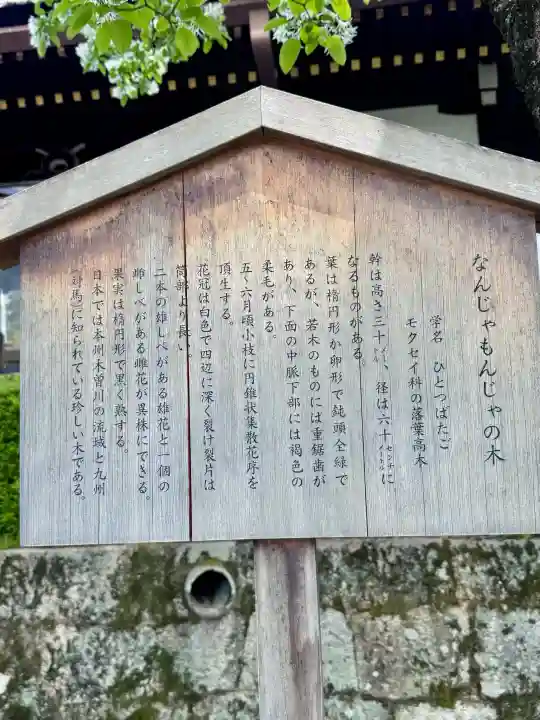 なんじゃもんじゃの木
学名　ひとつばたご
モクセイ科の落葉高木
幹は高さ三十メートル、径は六十センチメートルに
なるものがある。
葉は楕円形か卵形で鈍頭全縁で
あるが、若木のものには重鋸歯が
あり、下面の中脈下部には褐色の
柔毛がある。
五〜六月頃小枝に円錐状集散花序を
頂生する。
花冠は白色で四辺に深く裂け裂片は
筒部より長い。
二本の雄しべがある雄花と一個の
雌しべがある雌花が異株にできる。
果実は楕円形で黒く熟する。
日本では本州木曽川の流域と九州
対馬に知られている珍しい木である。